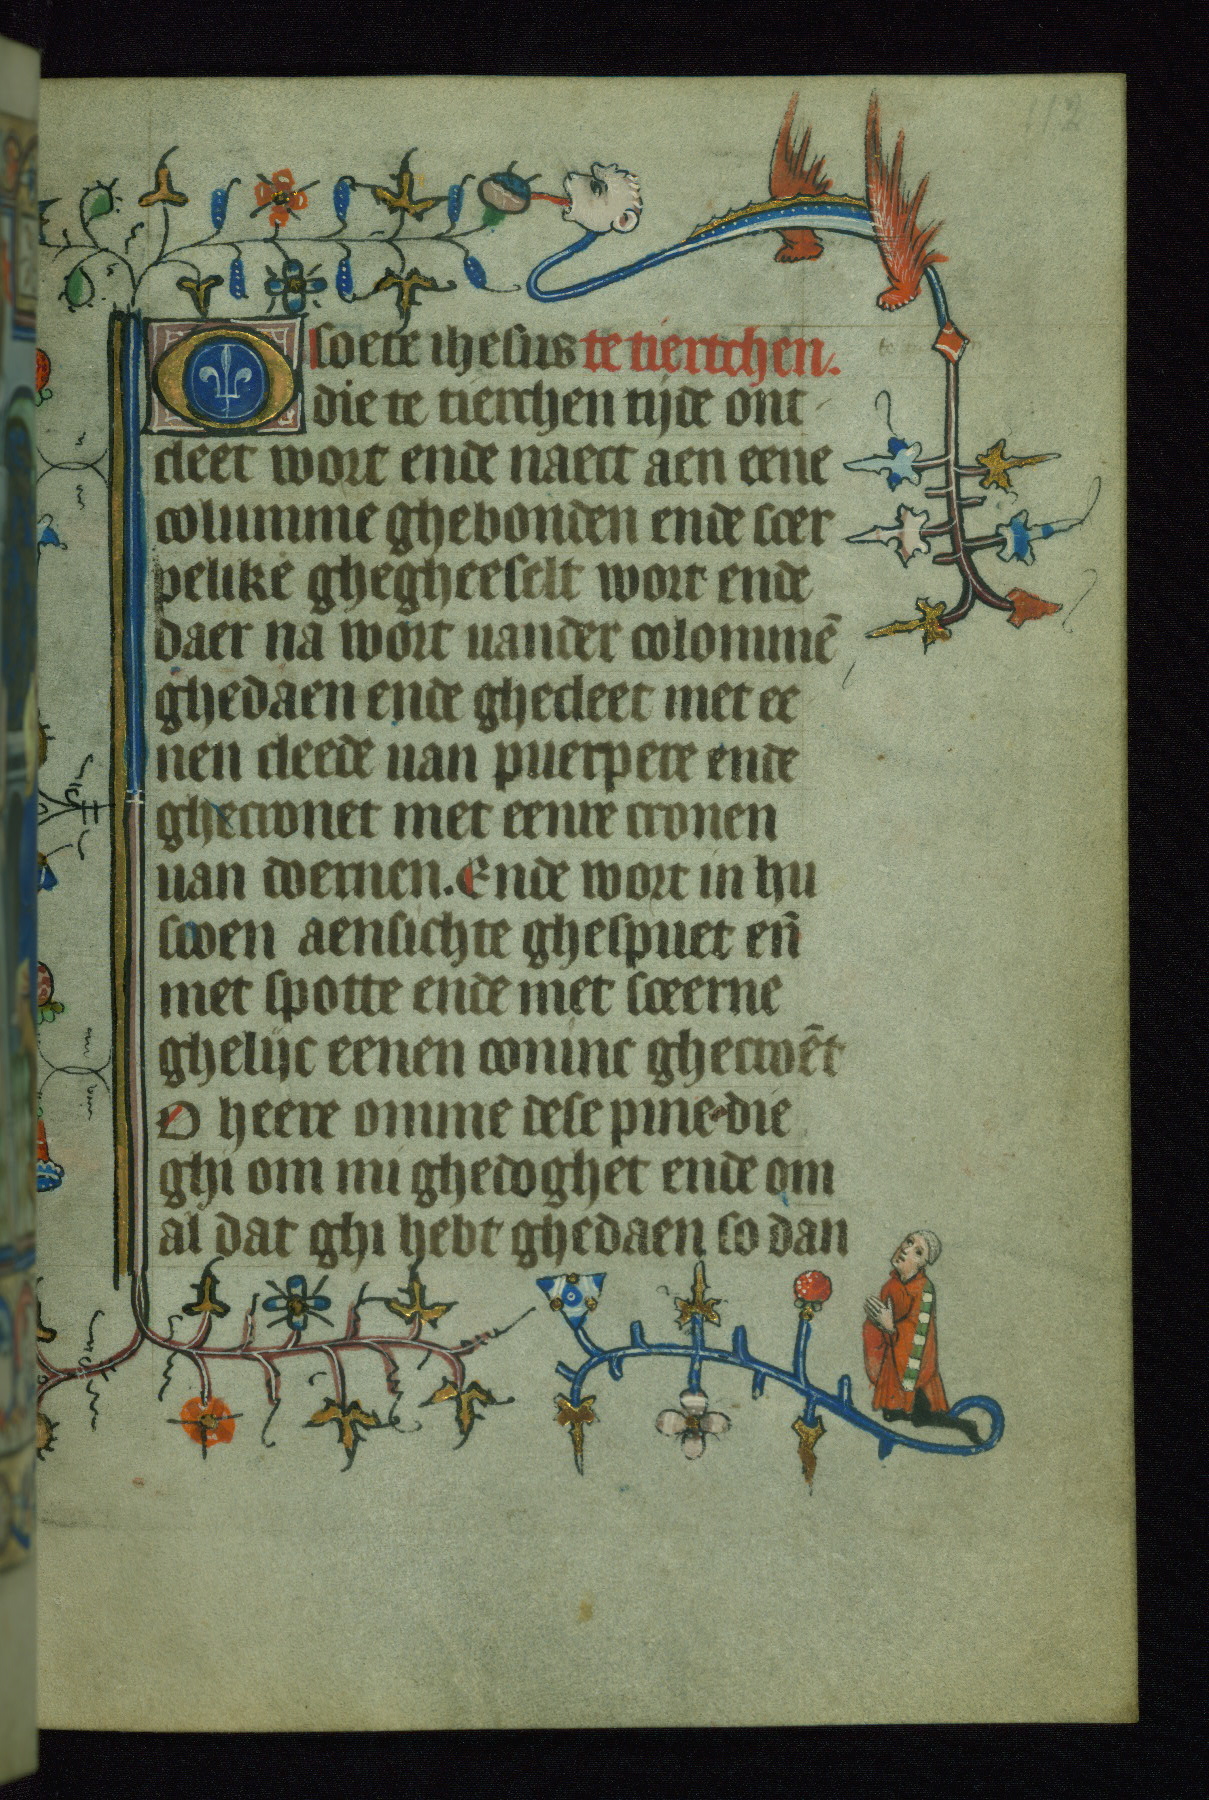 112
O soete ihesus te tiertchen.
die te tierchen tijde ont
cleet wort ende naect aen eene
columme ghebonden ende scer
pelike ghegheeselt wort ende
daer na wort uander colommē
ghedaen ende ghecleet met ee
nen cleede uan puerpere ende
ghecronet met eenre cronen
uan doernen. Ende wort in hu
scoen aensichte ghespuet eñ
met spotte ende met sceerne
ghelijc eenen coninc ghecroēt
O heere omme dese pine die
ghi om mi ghedoghet ende om
al dat ghi hebt ghedaen so dan